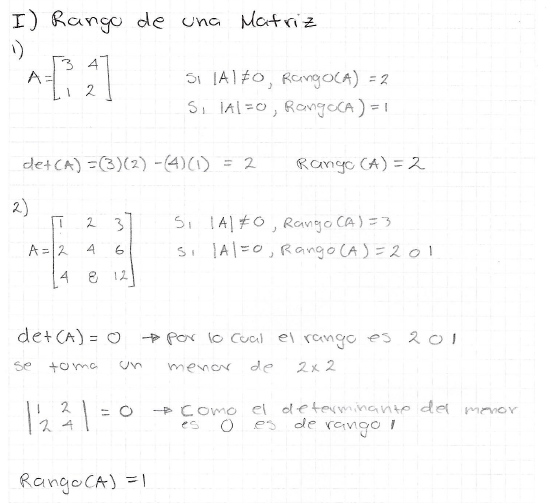 I) Rango de una Matriz
1)
A = [3 4
1 2]
Si |A|≠0, Rango(A) = 2
Si |A|=0, Rango(A) = 1
det(A) = (3)(2) - (4)(1) = 2 Rango (A) = 2
2)
A = [1 2 3
2 4 6
4 8 12]
Si |A|≠0, Rango(A) = 3
Si |A|=0, Rango(A) = 2 o 1
det(A) = 0 → por lo cual el rango es 2 o 1
se toma un menor de 2x2
|1 2
2 4| = 0 → Como el determinante del menor
es 0 es de rango 1
Rango(A) = 1